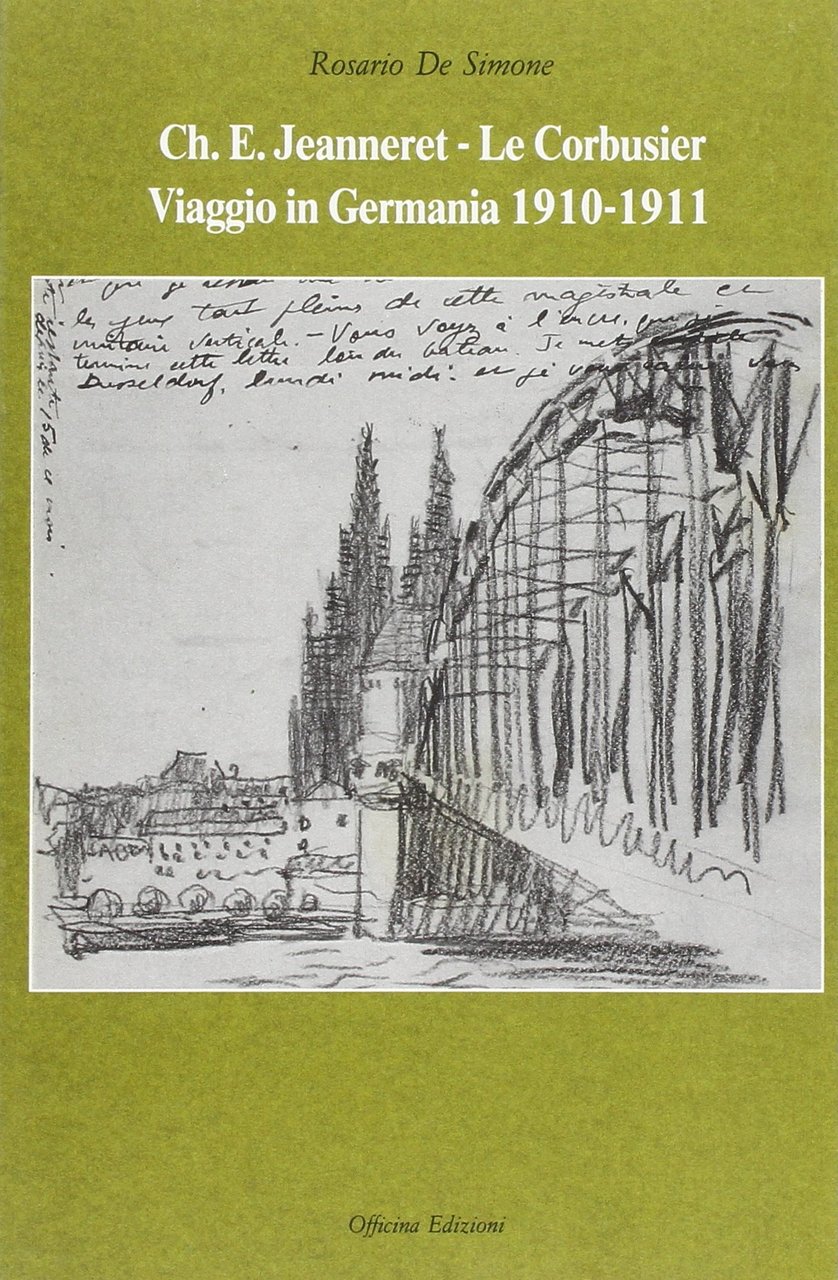 Rosario De Simone
Ch. E. Jeanneret - Le Corbusier
Viaggio in Germania 1910-1911
les yeux tout pleins de cette magistrale et
verticale. – Vous voyez à l'encre, que je
termine cette lettre loin du bateau. Je
Dusseldorf, lundi midi. et je vous
15 de ce mois.
Officina Edizioni